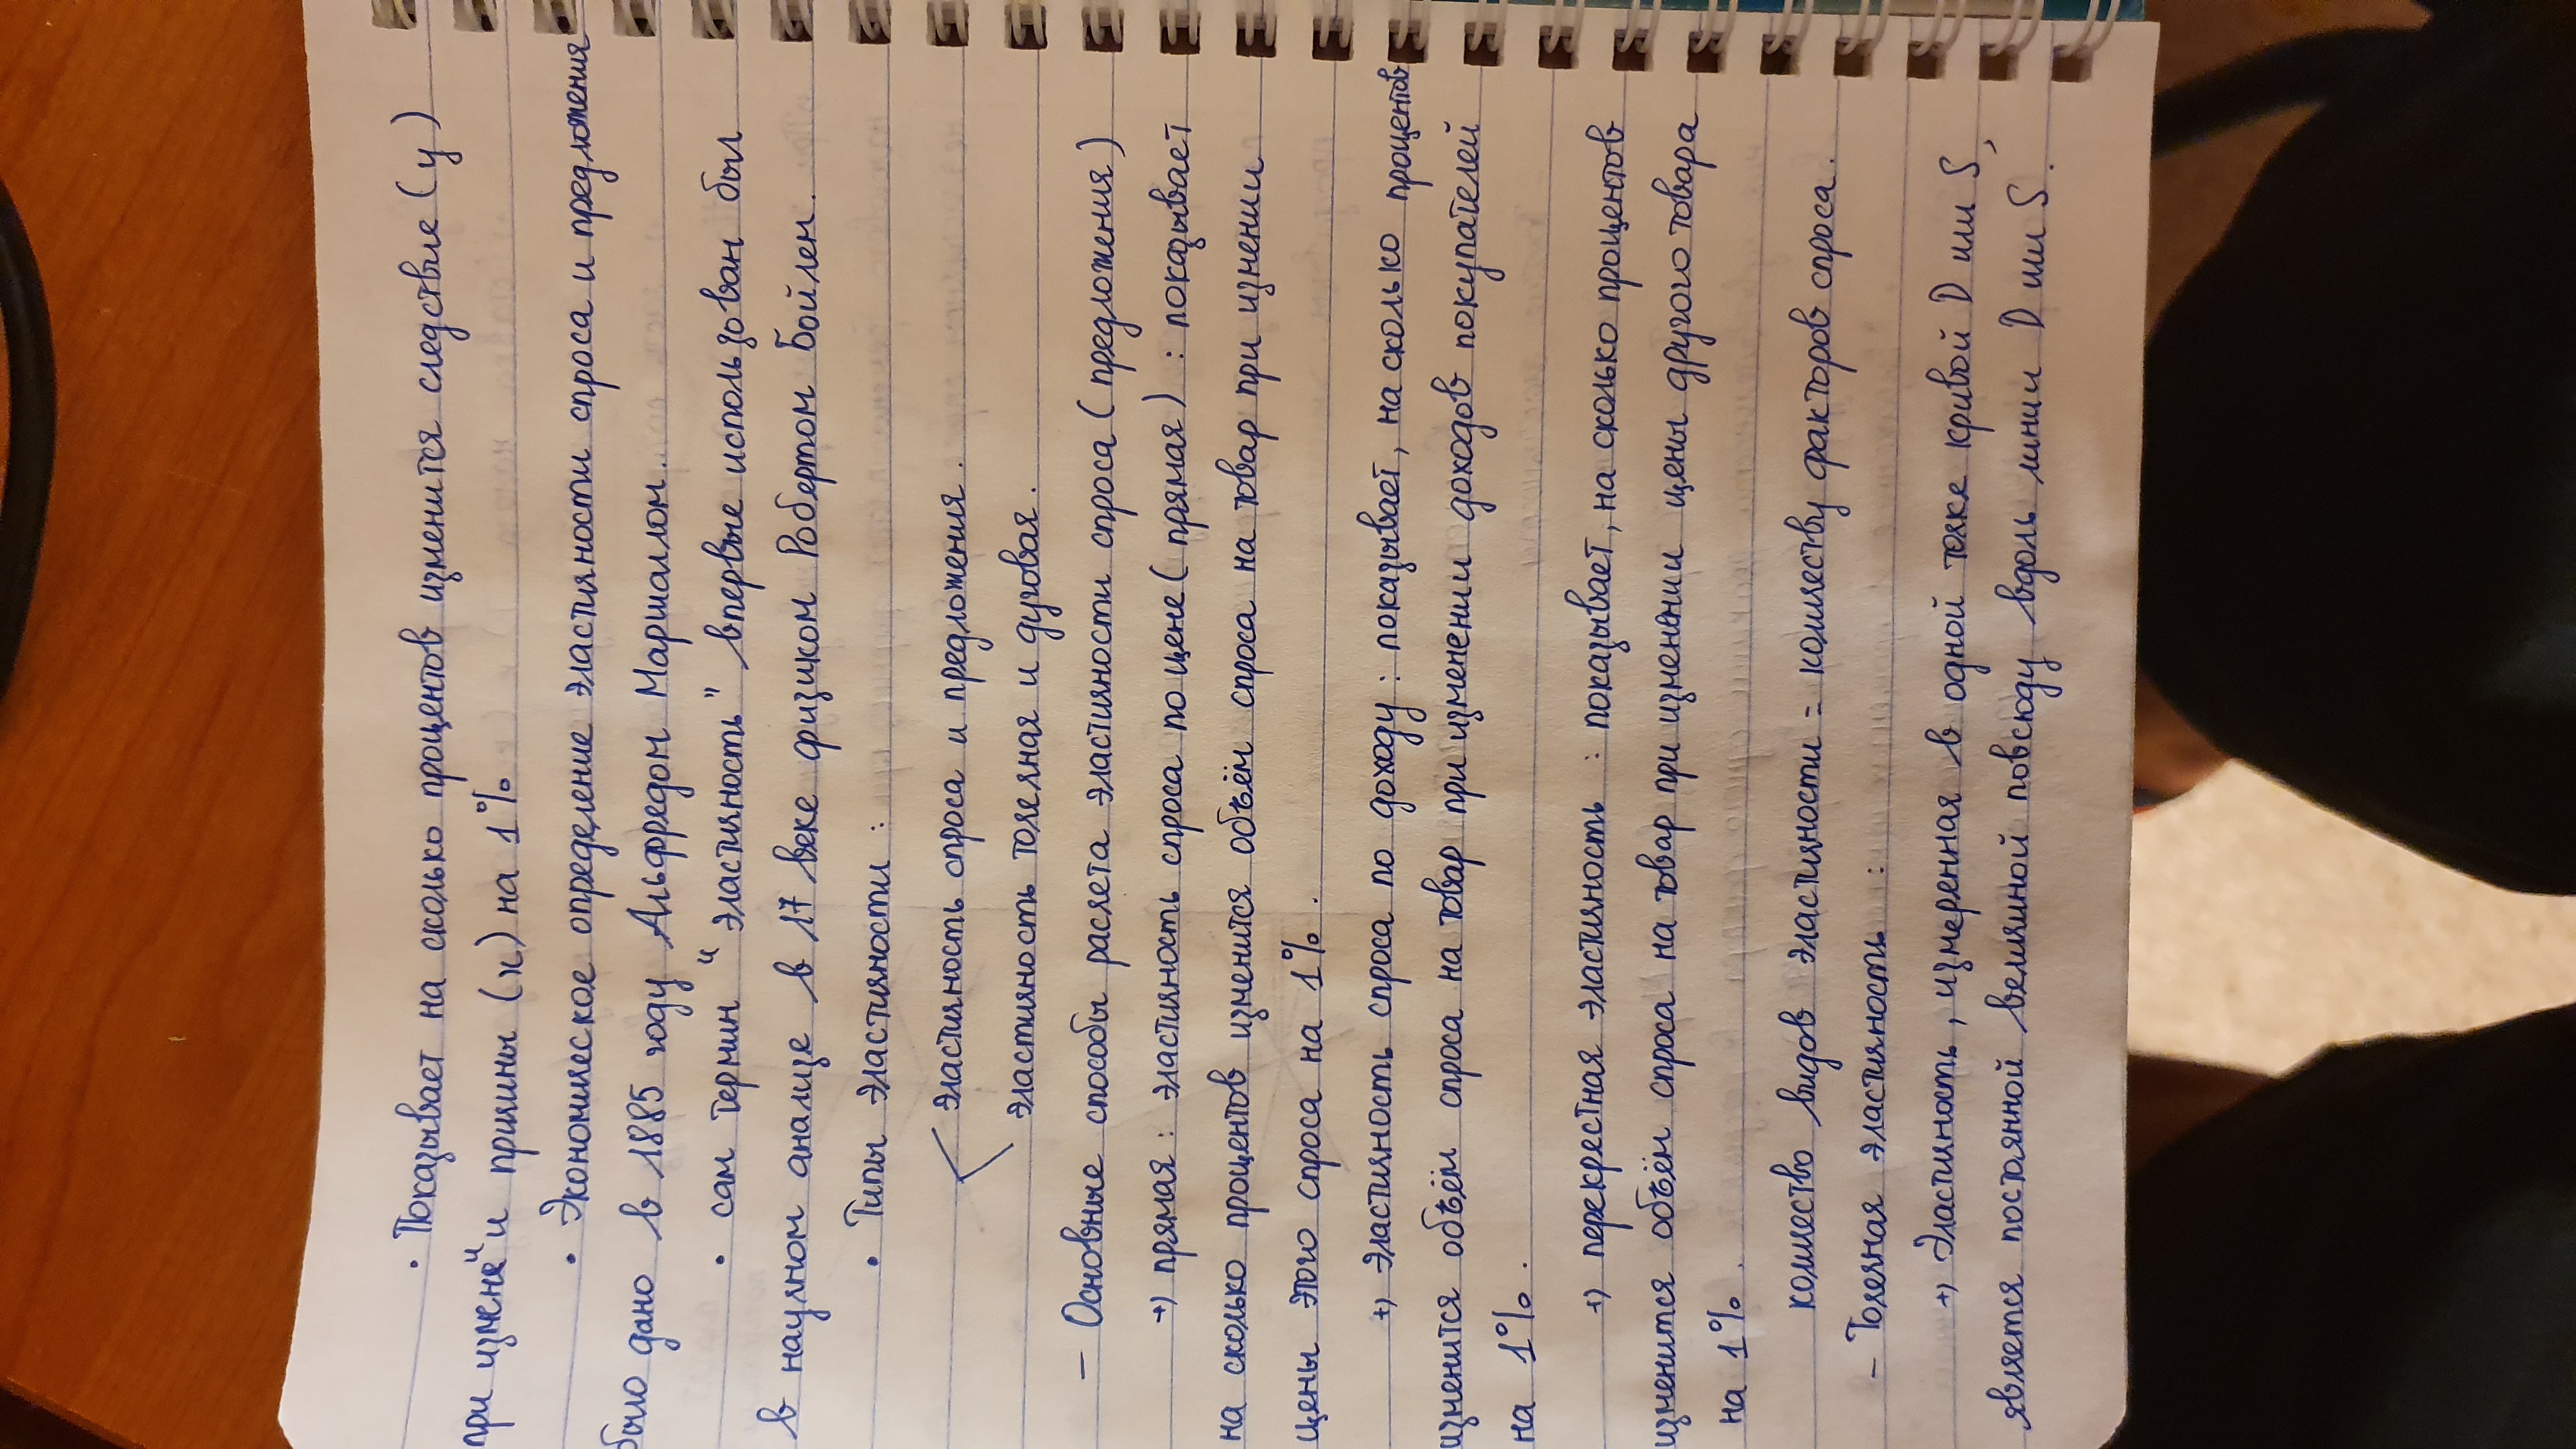 • Показывает на сколько процентов изменится следствие (y)
при измене"и причины (x) на 1%
• Экономическое определение эластичности спроса и предложения
было дано в 1885 году Альфредом Маршаллом.
• сам термин "эластичность" впервые использован был
в научном анализе в 17 веке физиком Робертом Бойлем.
• Типы эластичности :
эластичность спроса и предложения.
эластичность точечная и дуговая.
– Основные способы расчета эластичности спроса (предложения)
+) прямая : эластичность спроса по цене (прямая) : показывает
на сколько процентов изменится объём спроса на товар при изнении
цены этого спроса на 1%.
+) эластичность спроса по доходу : показывает, на сколько процентов
изменится объём спроса на товар при изменении доходов покупателей
на 1%.
+) перекрестная эластичность : показывает, на сколько процентов
изменится объём спроса на товар при изменении цены другого товара
на 1%.
количество видов эластичности = количеству факторов спроса.
– Точечная эластичность :
+) Эластичность, измеренная в одной точке кривой D или S,
является постоянной величиной повсюду вдоль линии D или S.